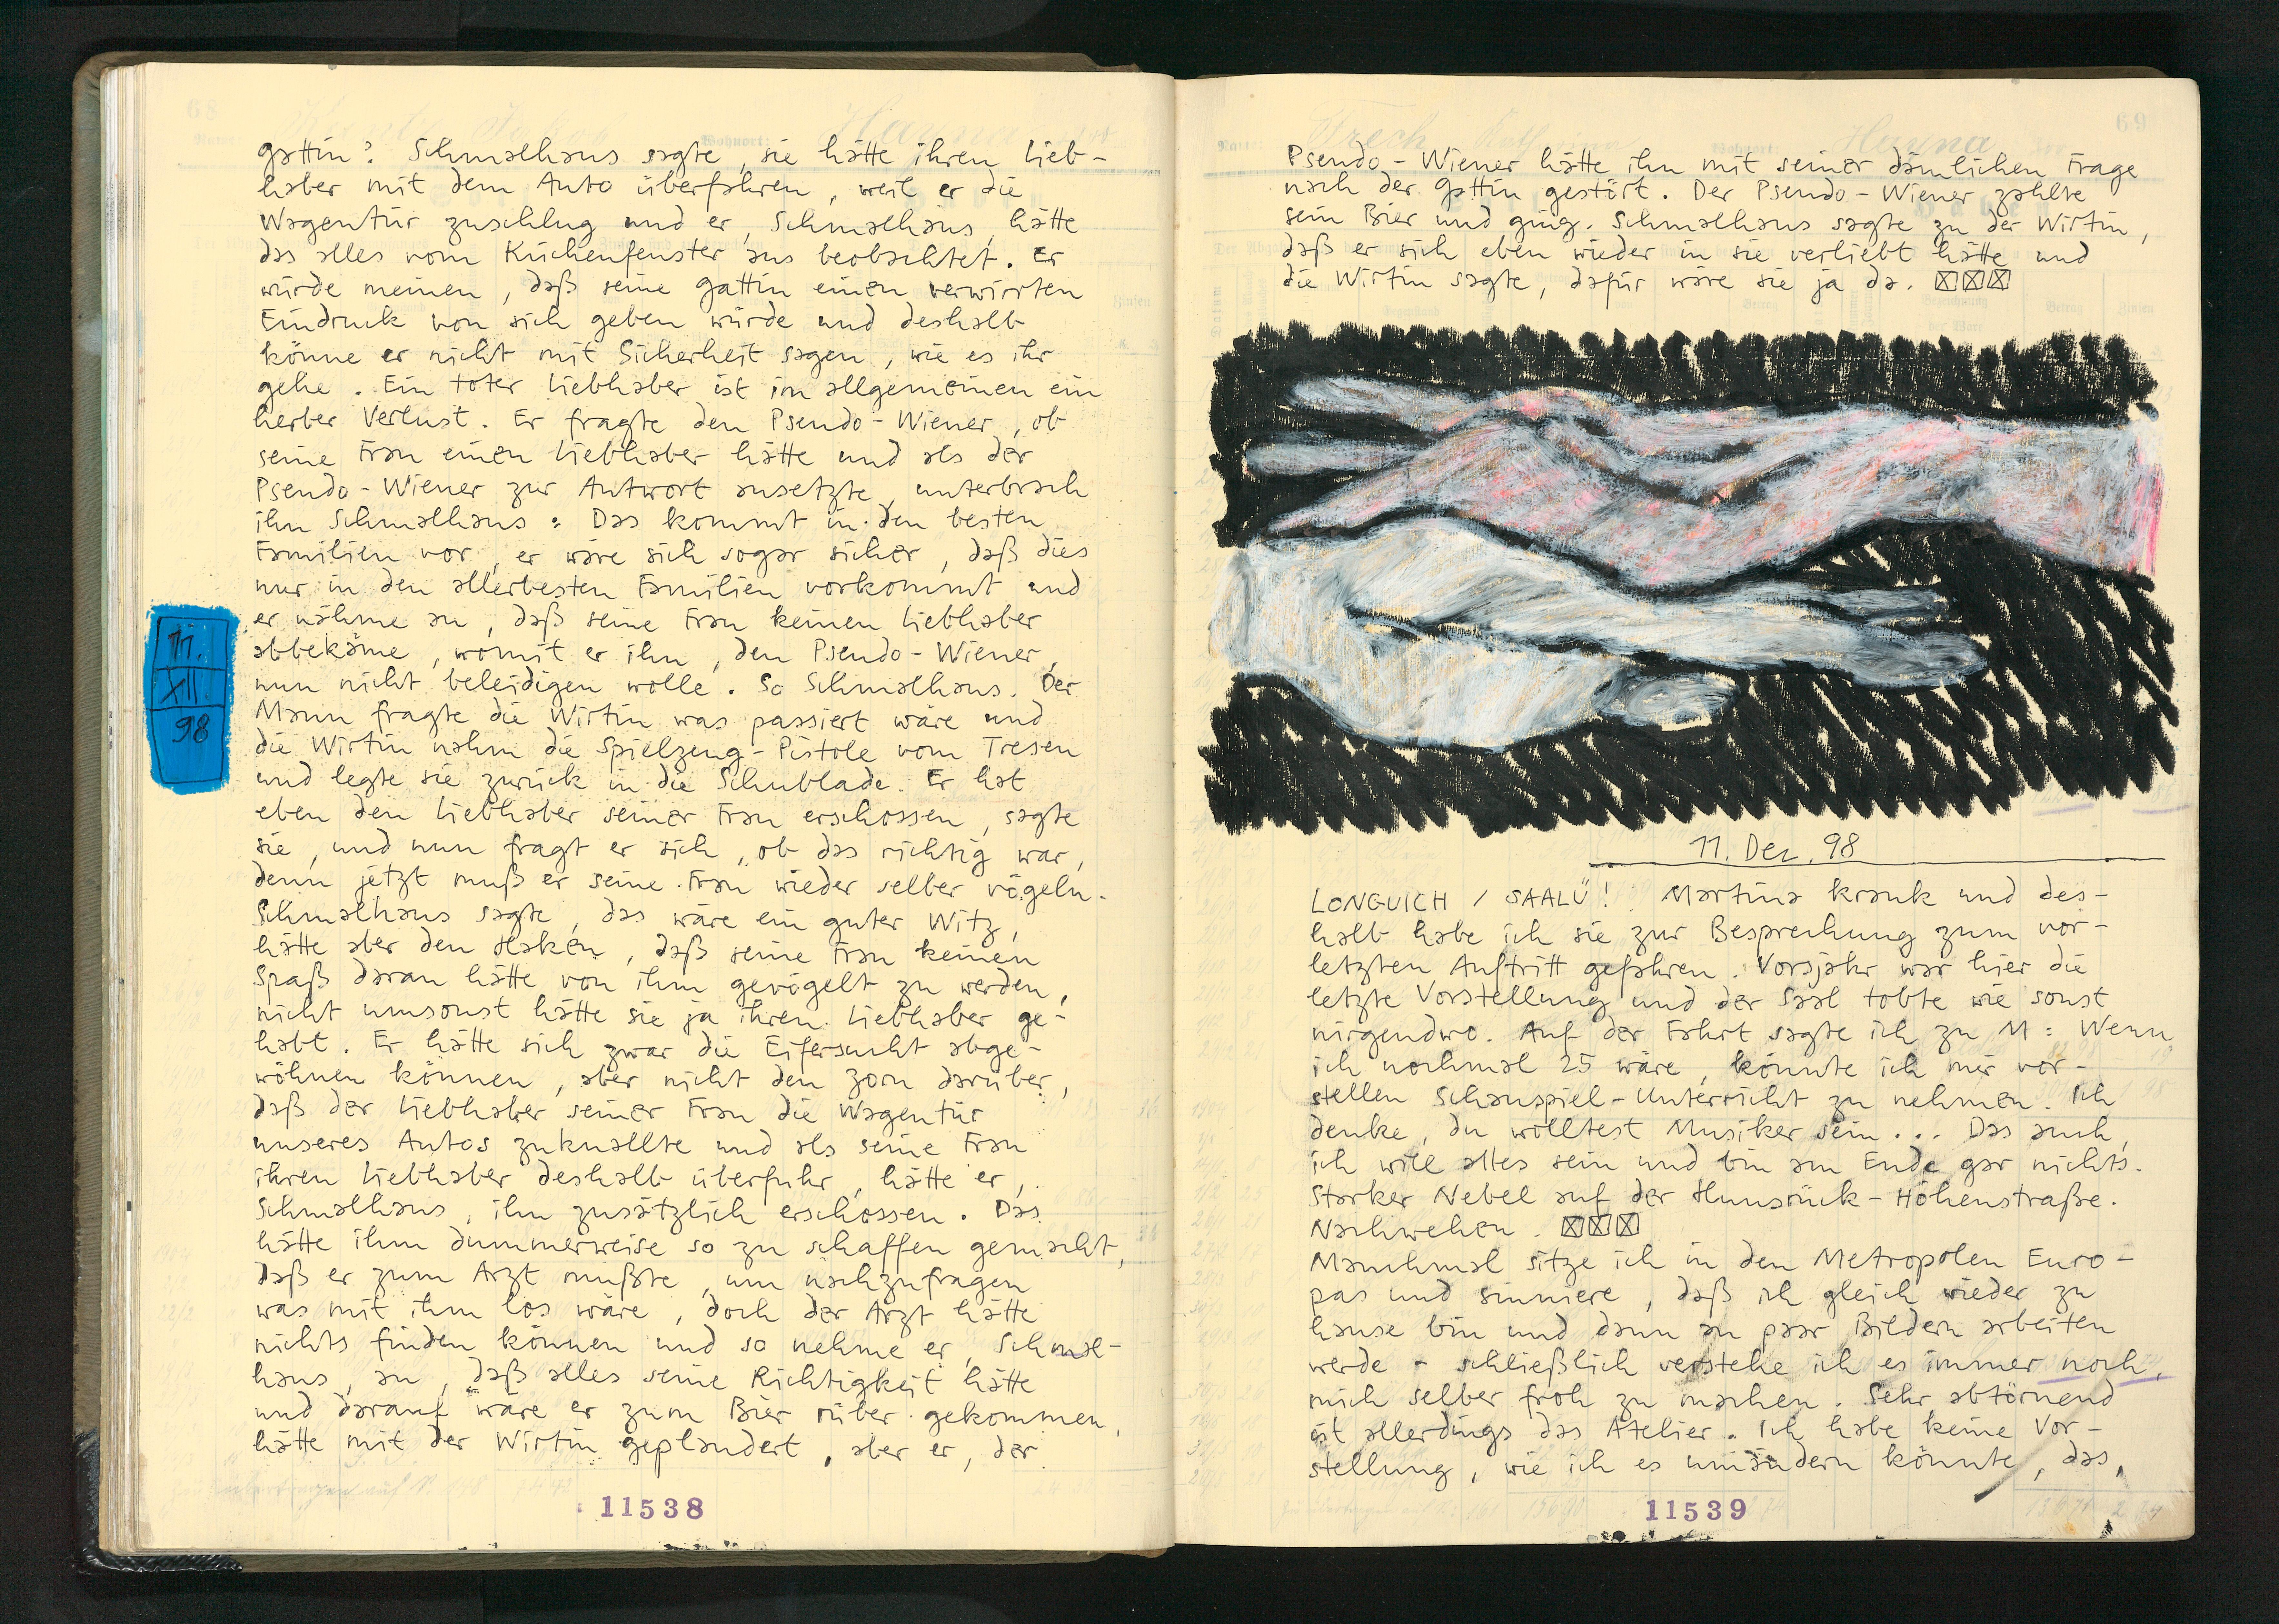 gattin? Schmalhaus sagte, sie hätte ihren Lieb-
haber mit dem Auto überfahren, weil er die
Wagentür zuschlug und er, Schmalhaus, hätte
das alles vom Küchenfenster aus beobachtet. Er
würde meinen, daß seine Gattin einen verwirrten
Eindruck von sich geben würde und deshalb
könne er nicht mit Sicherheit sagen, wie es ihr
gehe. Ein toter Liebhaber ist im allgemeinen ein
herber Verlust. Er fragte den Pseudo-Wiener, ob
seine Frau einen Liebhaber hätte und als der
Pseudo-Wiener zur Antwort ansetzte, unterbrach
ihn Schmalhaus: Das kommt in den besten
Familien vor, er wäre sich sogar sicher, daß dies
nur in den allerbesten Familien vorkommt und
er nähme an, daß seine Frau keinen Liebhaber
abbekäme, womit er ihn, den Pseudo-Wiener,
nun nicht beleidigen wolle. So Schmalhaus. Der
Mann fragte die Wirtin was passiert wäre und
die Wirtin nahm die Spielzeug-Pistole vom Tresen
und legte sie zurück in die Schublade. Er hat
eben den Liebhaber seiner Frau erschossen, sagte
sie, und nun fragt er sich, ob das richtig war,
denn jetzt muß er seine Frau wieder selber vögeln.
Schmalhaus sagte, das wäre ein guter Witz,
hätte aber den Haken, daß seine Frau keinen
Spaß daran hätte von ihm gevögelt zu werden,
nicht umsonst hätte sie ja ihren Liebhaber ge-
habt. Er hätte sich zwar die Eifersucht abge-
wöhnen können, aber nicht den Zorn darüber,
daß der Liebhaber seiner Frau die Wagentür
unseres Autos zuknallte und als seine Frau
ihren Liebhaber deshalb überfuhr, hätte er,
Schmalhaus, ihn zusätzlich erschossen. Das
hätte ihm dummerweise so zu schaffen gemacht,
daß er zum Arzt mußte, um nachzufragen
was mit ihm los wäre, doch der Arzt hätte
nichts finden können und so nehme er, Schmal-
haus, an, daß alles seine Richtigkeit hätte
und darauf wäre er zum Bier rüber gekommen,
hätte mit der Wirtin geplaudert, aber er, der
11.
XII
98
11538
69
Pseudo-Wiener hätte ihn mit seiner dämlichen Frage
nach der Gattin gestört. Der Pseudo-Wiener zahlte
sein Bier und ging. Schmalhaus sagte zu der Wirtin,
daß er sich eben wieder in sie verliebt hätte und
die Wirtin sagte, dafür wäre sie ja da.
11. Dez. 98
LONGUICH / SAALÜ! Martina krank und des-
halb habe ich sie zur Besprechung zum vor-
letzten Auftritt gefahren. Vorsjahr war hier die
letzte Vorstellung und der Saal tobte wie sonst
nirgendwo. Auf der Fahrt sagte ich zu M: Wenn
ich nochmal 25 wäre, könnte ich mir vor-
stellen Schauspiel-Unterricht zu nehmen. Ich
denke, du wolltest Musiker sein... Das auch,
ich will alles sein und bin am Ende gar nichts.
Starker Nebel auf der Hunsrück-Höhenstraße.
Nachwehen.
Manchmal sitze ich in den Metropolen Euro-
pas und sinniere, daß ich gleich wieder zu
hause bin und dann an paar Bildern arbeiten
werde - schließlich verstehe ich es immer noch,
mich selber froh zu machen. Sehr abtörnend
ist allerdings das Atelier. Ich habe keine Vor-
stellung, wie ich es umändern könnte, das,
11539